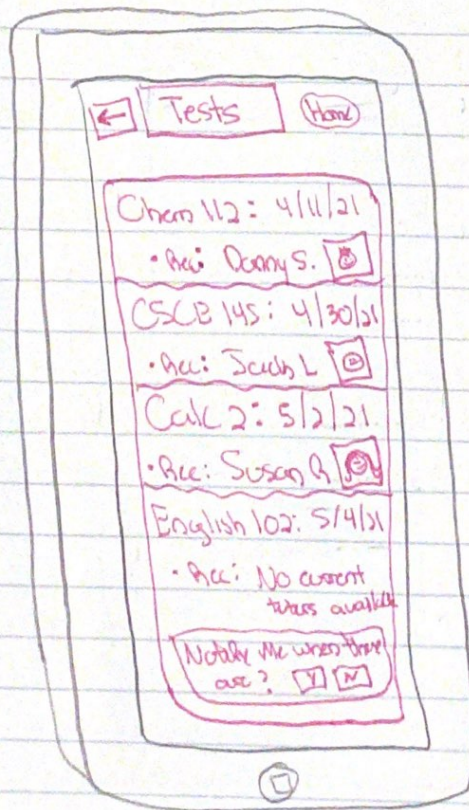 ← Tests Home
Chem 112: 4/11/21
• Rec: Danny S.
CSCE 145: 4/30/21
• Rec: Jacob L
Calc 2: 5/2/21
• Rec: Susan R
English 102: 5/4/21
• Rec: No current
tutors available
Notify Me when there
are? Y N